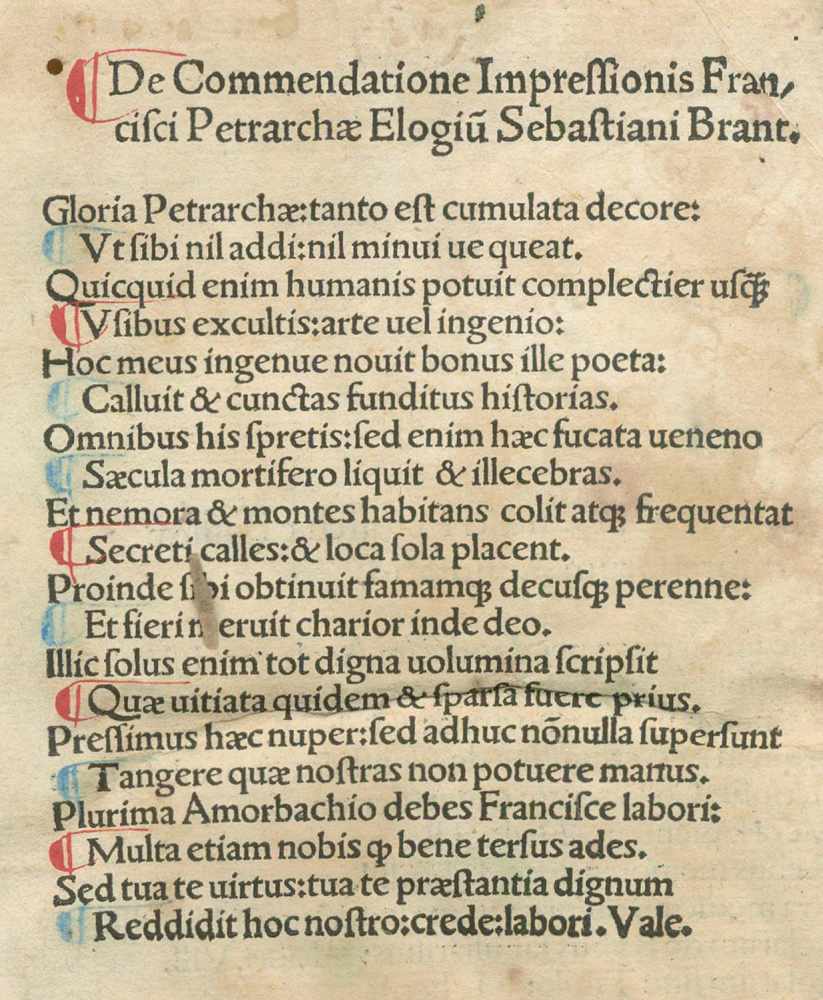 De Commendatione Impreſſionis Fran,
ciſci Petrarchæ Elogiũ Sebaſtiani Brant.
Gloria Petrarchæ: tanto eſt cumulata decore:
Vt ſibi nil addi: nil minui ue queat.
Quicquid enim humanis potuit complectier uſꝗ̃
Vſibus excultis: arte uel ingenio:
Hoc meus ingenue nouit bonus ille poeta:
Calluit & cunctas funditus hiſtorias.
Omnibus his ſpretis: ſed enim hæc fucata ueneno
Sæcula mortifero liquit & illecebras.
Et nemora & montes habitans colit atꝗ frequentat
Secreti calles: & loca ſola placent.
Proinde ſibi obtinuit famamꝗ decuſꝗ perenne:
Et fieri meruit charior inde deo.
Illic ſolus enim tot digna uolumina ſcripſit
Quæ uitiata quidem & ſparſa fuere prius.
Preſſimus hæc nuper: ſed adhuc nõnulla ſuperſunt
Tangere quæ noſtras non potuere manus.
Plurima Amorbachio debes Franciſce labori:
Multa etiam nobis ꝙ bene terſus ades.
Sed tua te uirtus: tua te præſtantia dignum
Reddidit hoc noſtro: crede: labori. Vale.